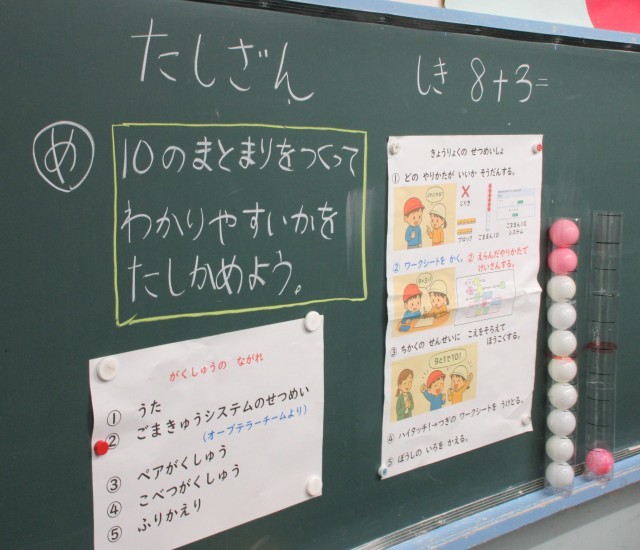 たしざん
しき 8+3=
め
10のまとまりをつくって
わかりやすいかを
たしかめよう。
がくしゅうの ながれ
① うた
② ごまきゅうシステムのせつめい
(オーブテラーチームより)
③ ペアがくしゅう
④ こべつがくしゅう
⑤ ふりかえり
きょうりょくの せつめいしょ
① どの やりかたが いいか そうだんする。
ブロック
システム
② ワークシートを かく。 ② えらんだやりかたで
けいさんする。
③ ちかくの せんせいに こえをそろえて
ほうこくする。
9と1で10!
④ ハイタッチ!→つぎの ワークシートを うけとる。
⑤ ぼうしの いろを かえる。